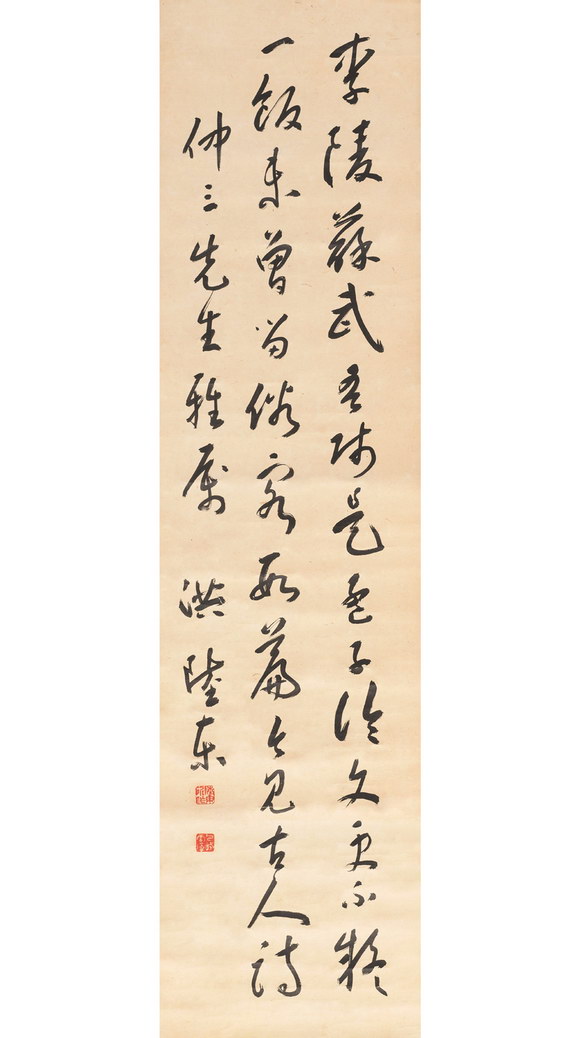 李陵蘇武吾師是孟子論文更不疑
一飯未曾留俗客數篇今見古人詩
仲三先生雅屬 洪陸東